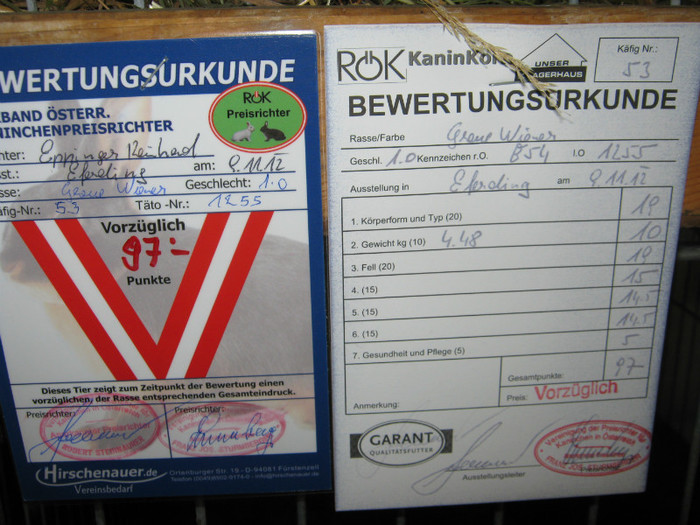 WERTUNGSURKUNDE
BAND ÖSTERR.
NINCHENPREISRICHTER
RÖK
Preisrichter
hter: Eppinger Reinhard
sst.: Eferding am: 9.11.12
sse: Graue Wiener Geschlecht: 1.0
äfig-Nr.: 53 Täto -Nr.: 1255
Vorzüglich
97.-
Punkte
Dieses Tier zeigt zum Zeitpunkt der Bewertung einen
vorzüglichen, der Rasse entsprechenden Gesamteindruck.
Preisrichter: Preisrichter:
Hirschenauer.de
Vereinsbedarf
Ortenburger Str. 19 - D-94081 Fürstenzell
RÖK KaninKorn
UNSER
LAGERHAUS
Käfig Nr.:
53
BEWERTUNGSURKUNDE
Rasse/Farbe Graue Wiener
Geschl. 1.0 Kennzeichen r.O. B54 l.O 1255
Ausstellung in Eferding am 9.11.12
1. Körperform und Typ (20) 19
2. Gewicht kg (10) 4.48 10
3. Fell (20) 19
4. (15) 15
5. (15) 14.5
6. (15) 14.5
7. Gesundheit und Pflege (5) 5
Gesamtpunkte: 97-
Preis: Vorzüglich
Anmerkung:
GARANT
QUALITÄTSFUTTER
Ausstellungsleiter